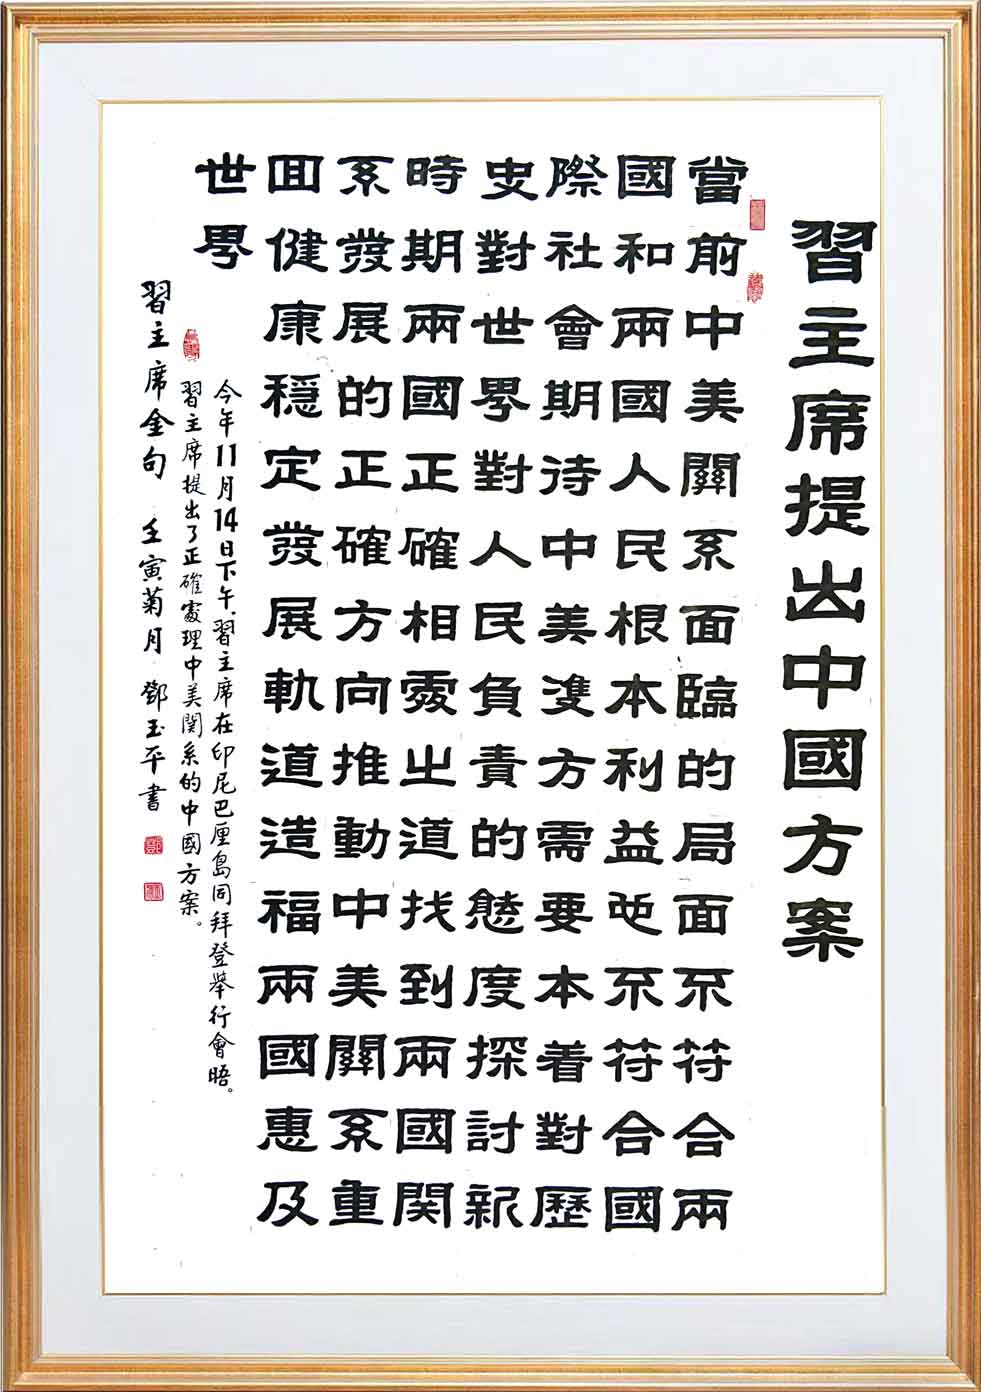 習主席提出中國方案
當前中美關系面臨的局面不符合兩
國和兩國人民根本利益也不符合國
際社會期待中美雙方需要本着對歷
史對世界對人民負責的態度探討新
時期兩國正確相處之道找到兩國関
系發展的正確方向推動中美關系重
回健康穩定發展軌道造福兩國惠及
世界
今年11月14日下午、習主席在印尼巴厘島同拜登舉行會晤。
習主席提出了正確處理中美関系的中國方案。
習主席金句 壬寅菊月 鄧玉平書